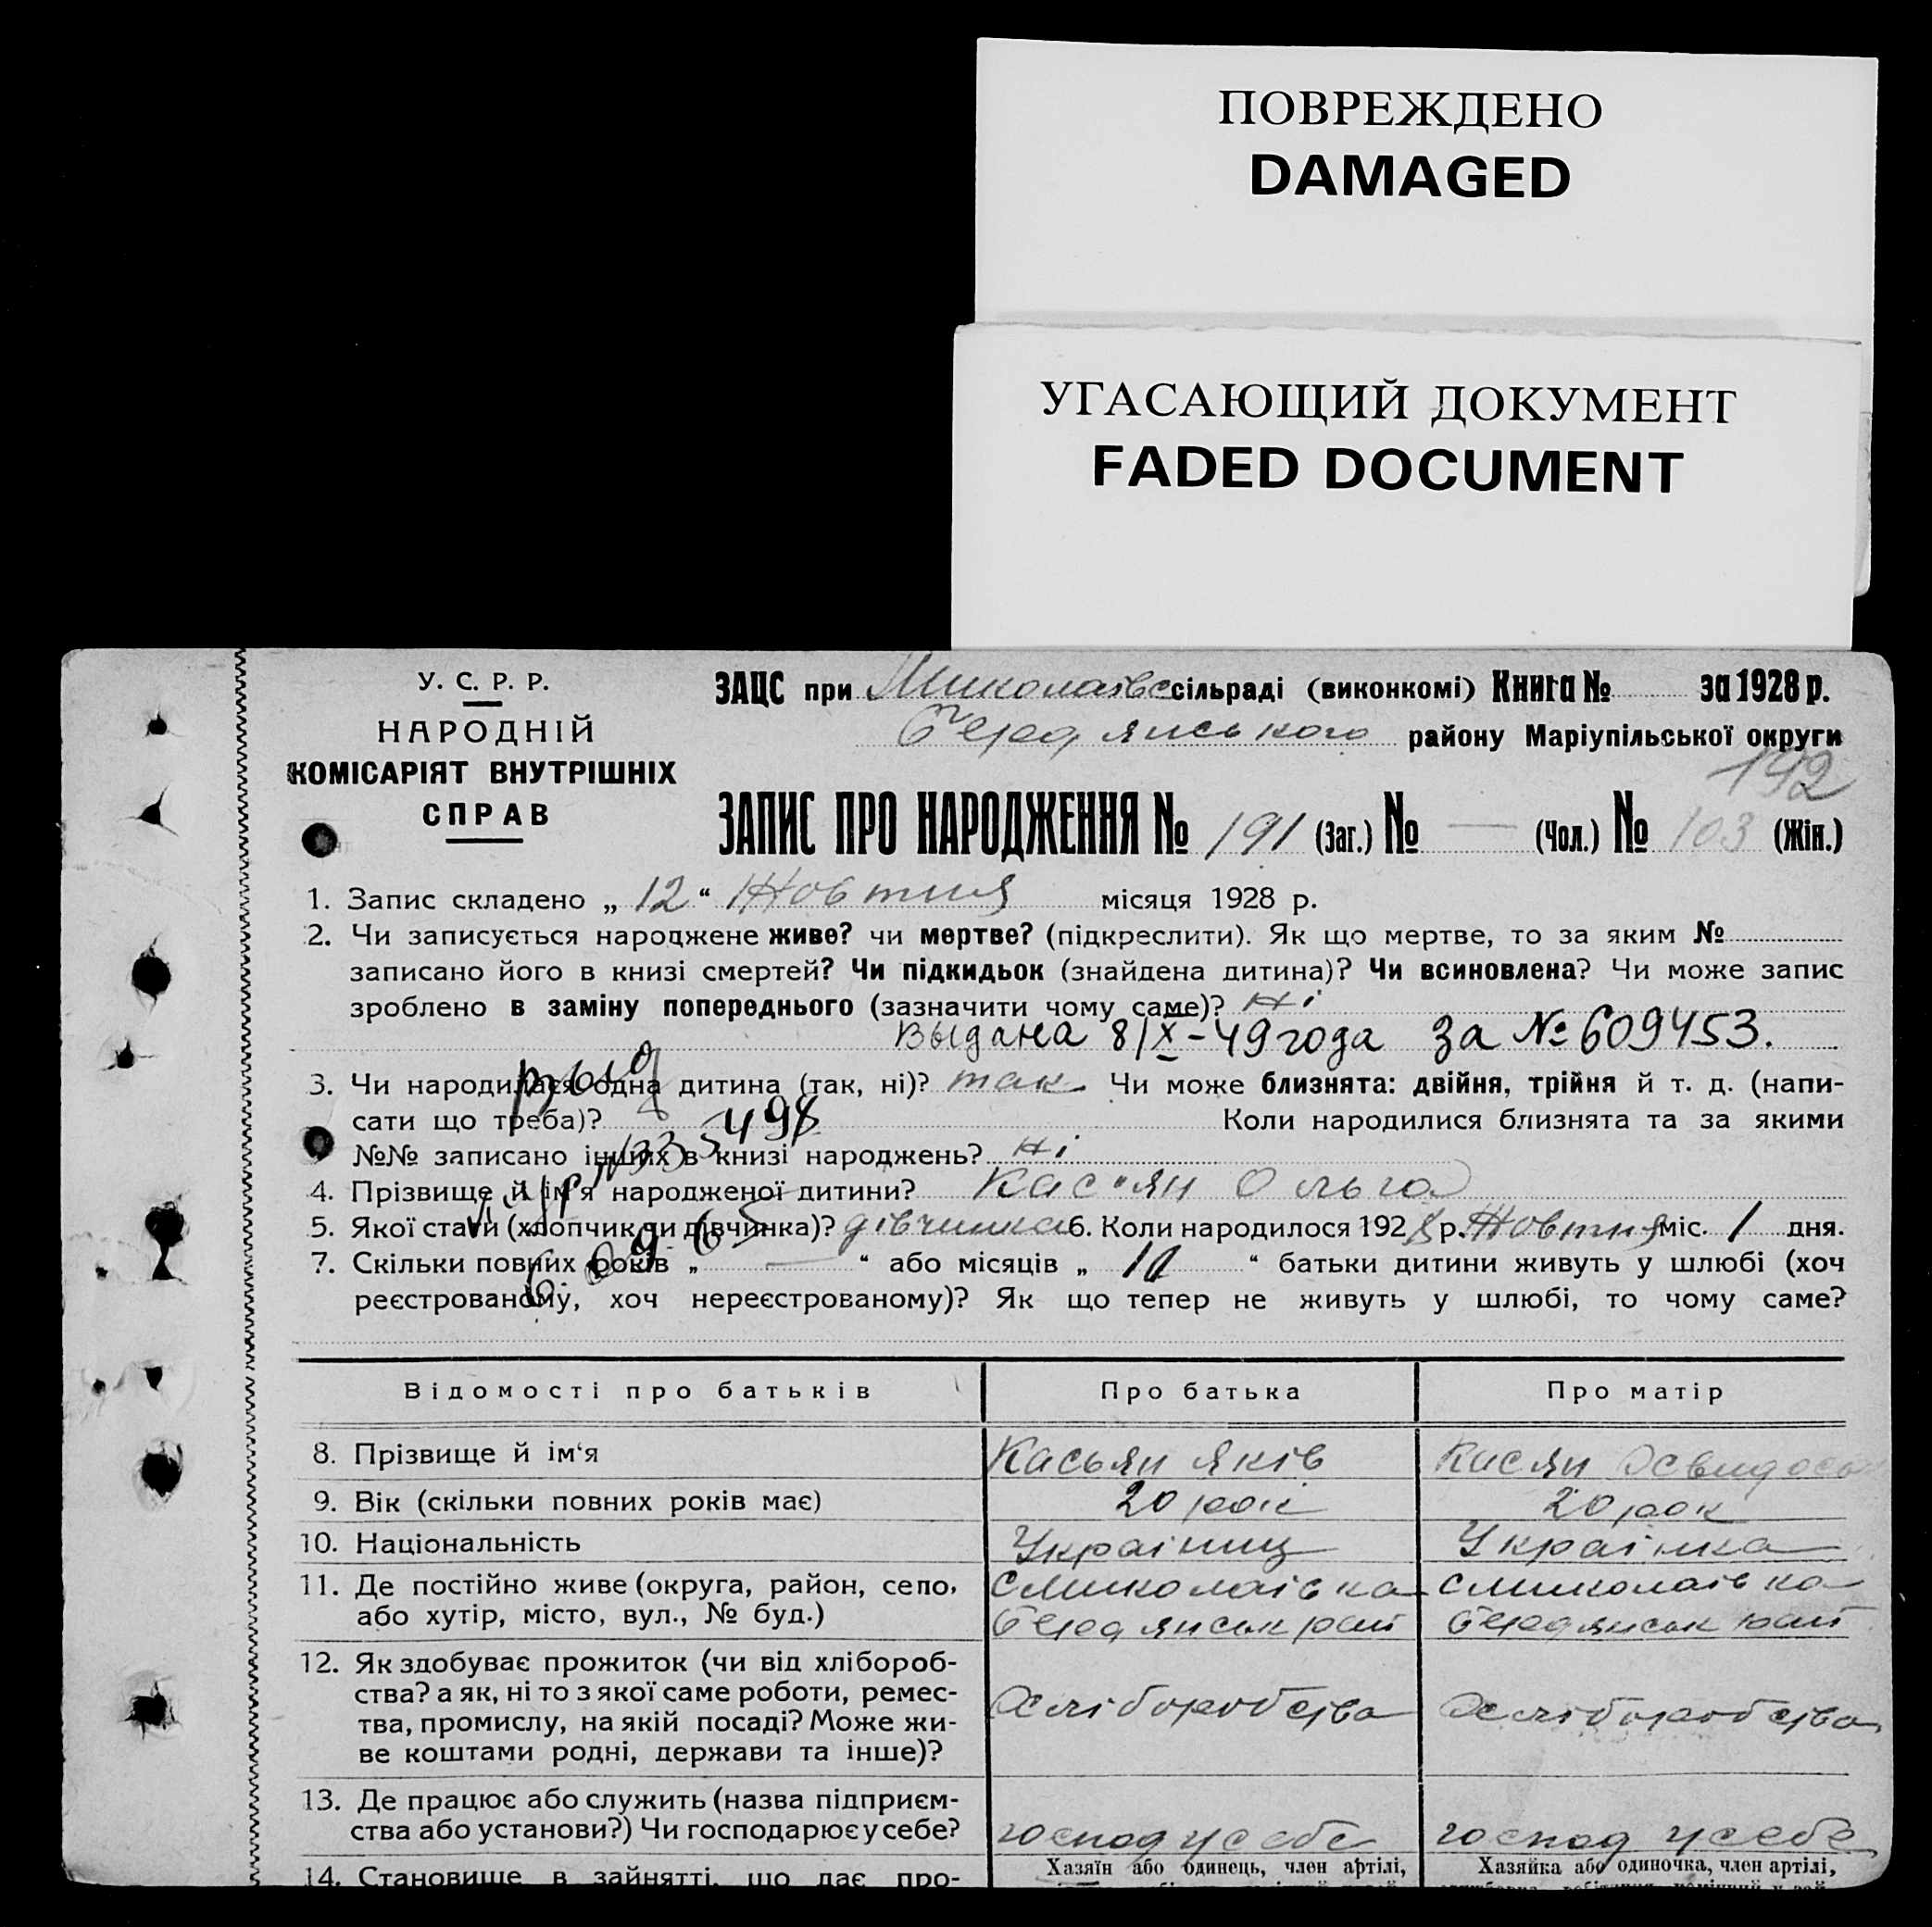 ПОВРЕЖДЕНО
DAMAGED
УГАСАЮЩИЙ ДОКУМЕНТ
FADED DOCUMENT
У. С. Р. Р.
НАРОДНІЙ
КОМІСАРІЯТ ВНУТРІШНІХ
СПРАВ
ЗАЦС при Миколаївс сільраді (виконкомі) Книга № за 1928 р.
Бердянського району Маріупільської округи
192
ЗАПИС ПРО НАРОДЖЕННЯ № 191 (Заг.) № — (Чол.) № 103 (Жін.)
1. Запис складено „ 12 “ Жовтня місяця 1928 р.
2. Чи записується народжене живе? чи мертве? (підкреслити). Як що мертве, то за яким №
записано його в книзі смертей? Чи підкидьок (знайдена дитина)? Чи всиновлена? Чи може запис
зроблено в заміну попереднього (зазначити чому саме)? Ні
Выдана 8/X-49 года за № 609453.
3. Чи народилася одна дитина (так, ні)? так Чи може близнята: двійня, трійня й т. д. (напи-
сати що треба)? Коли народилися близнята та за якими
№№ записано інших в книзі народжень? Ні
4. Прізвище й ім'я народженої дитини? Кас'ян Ольга
5. Якої стати (хлопчик чи дівчинка)? дівчинка 6. Коли народилося 1928 р. Жовтня міс. 1 дня.
7. Скільки повних років „ — “ або місяців „ 10 “ батьки дитини живуть у шлюбі (хоч
реєстрованому, хоч нереєстрованому)? Як що тепер не живуть у шлюбі, то чому саме?
Відомості про батьків Про батька Про матір
8. Прізвище й ім‘я Касьян Яків Касян
9. Вік (скільки повних років має) 20 рок 20 рок
10. Національність Українец Українка
11. Де постійно живе (округа, район, село, с Миколаівка с Миколаівка
або хутір, місто, вул., № буд.) Бердянськ рай Бердянськ рай
12. Як здобуває прожиток (чи від хлібороб-
ства? а як, ні то з якої саме роботи, ремес-
тва, промислу, на якій посаді? Може жи- Хліборобства Хліборобства
ве коштами родні, держави та інше)?
13. Де працює або служить (назва підприєм-
ства або установи?) Чи господарює у себе? господ у себе господ у себе
Хазяїн або одинець, член артілі, Хазяйка або одиночка, член артілі,
14. Становище в зайнятті, що дає про-